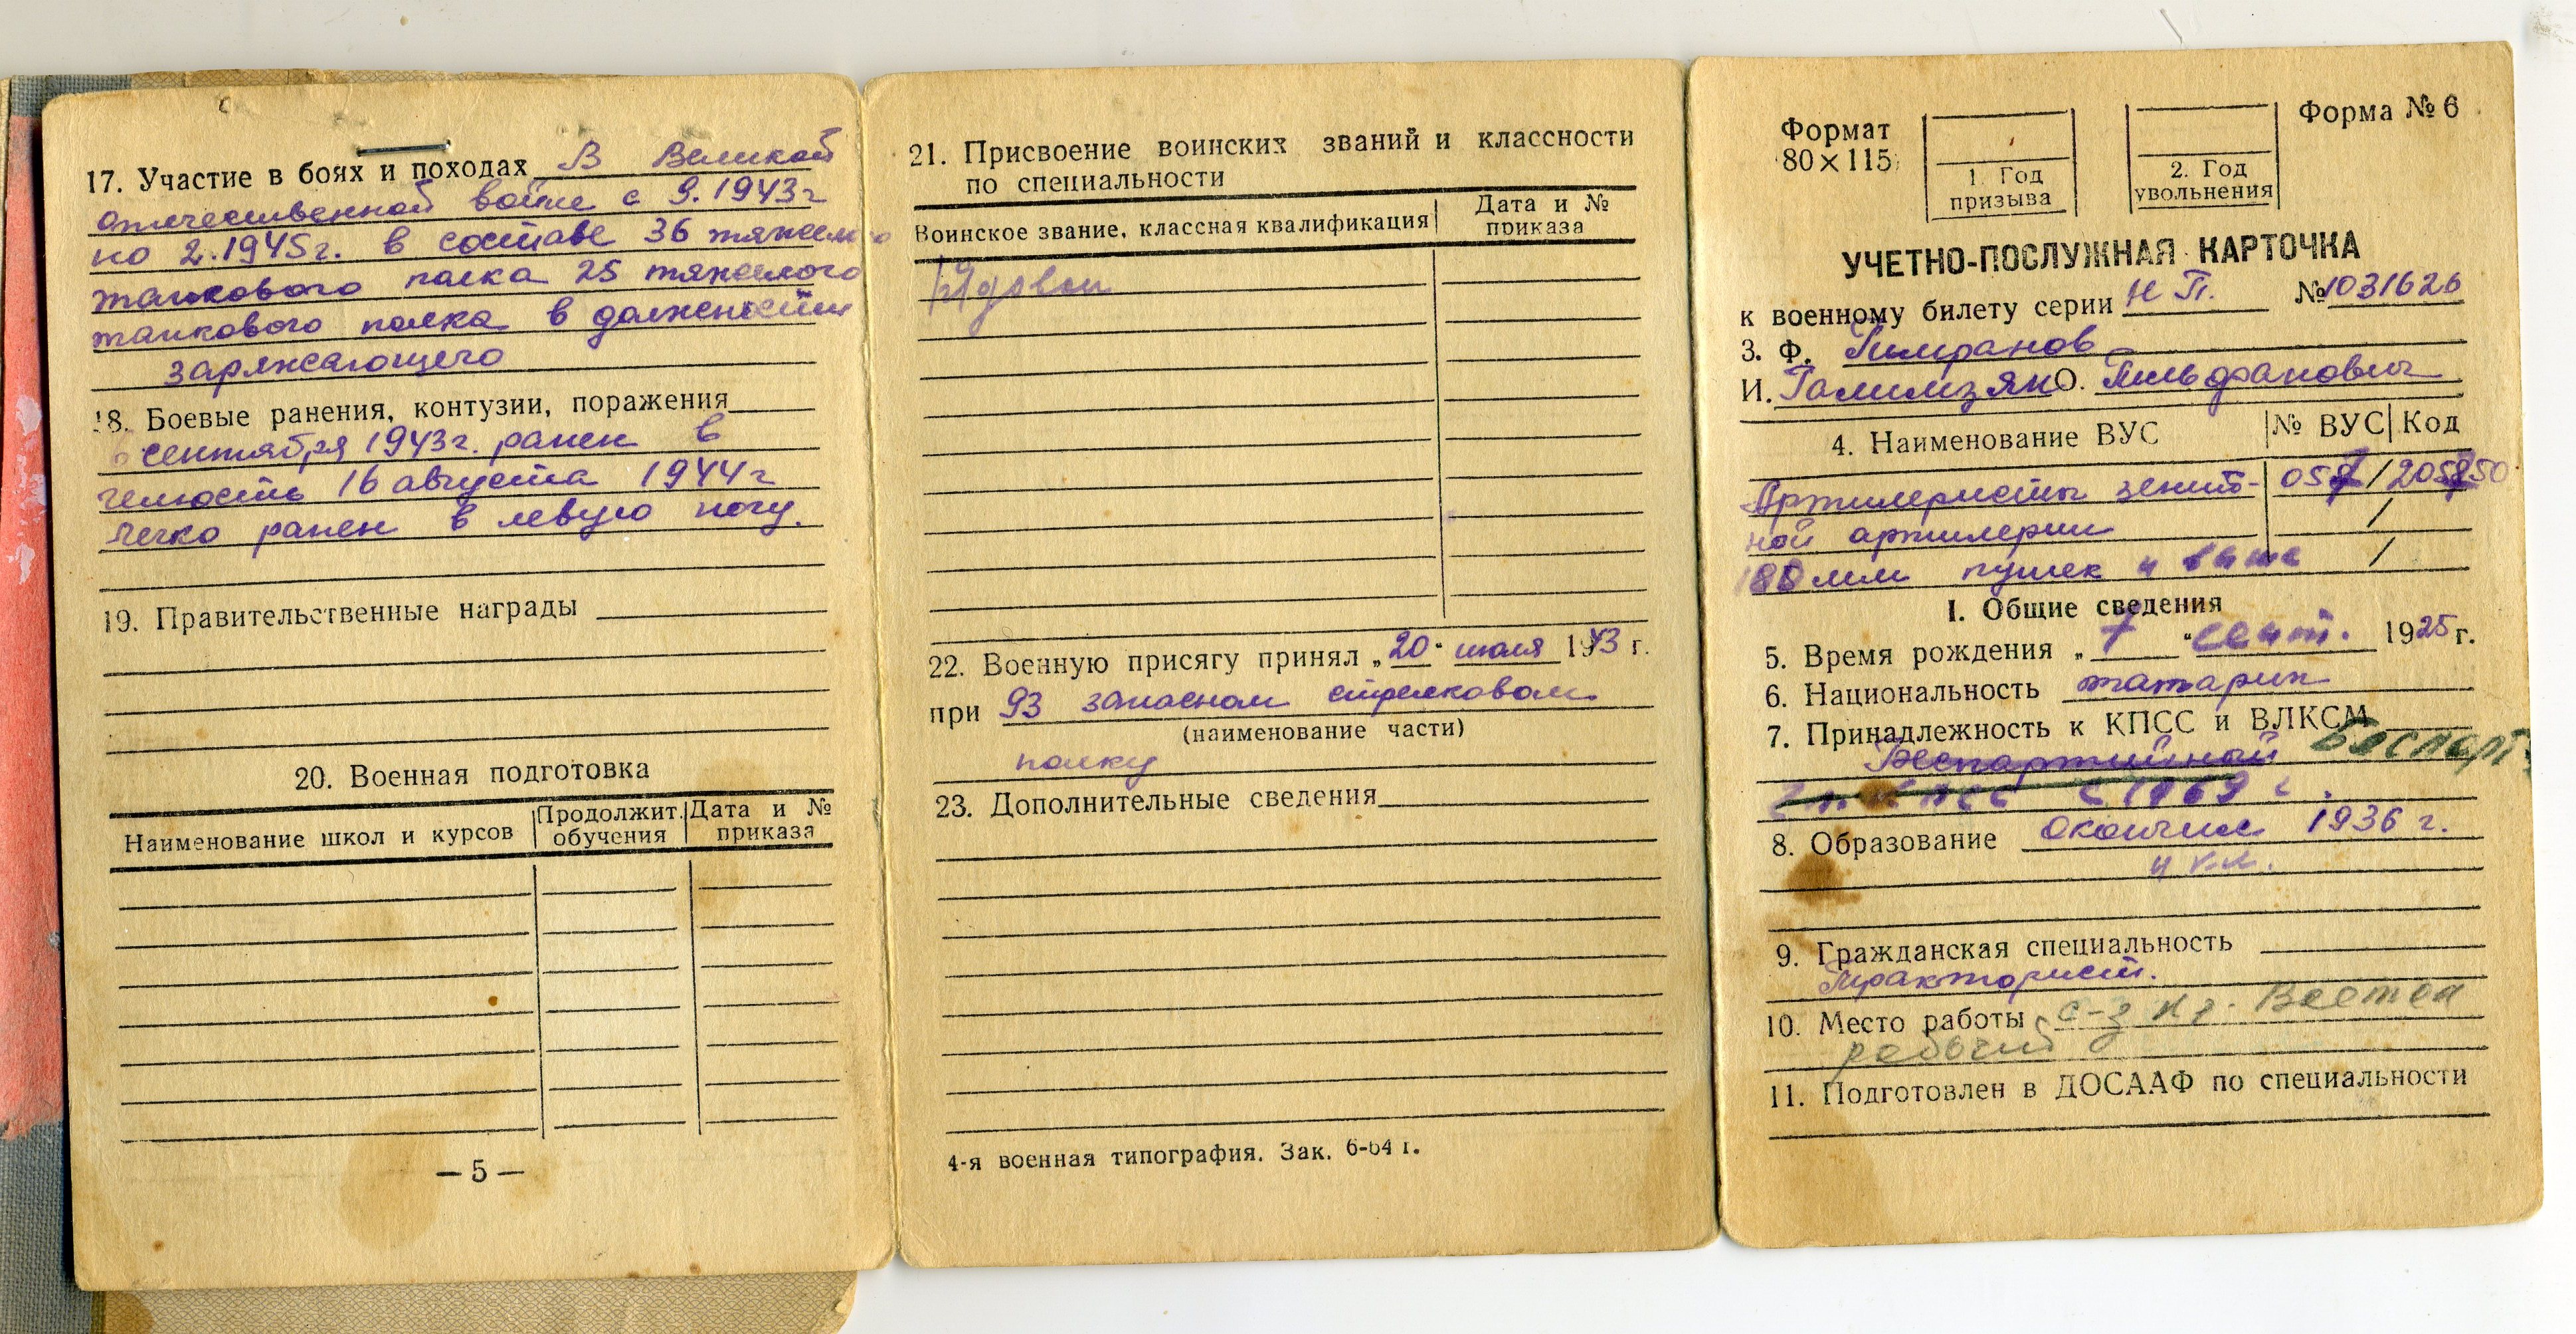 17. Участие в боях и походах В Великой
отечественной войне с 9.1943г
по 2.1945г. в составе 36 тяжелого
танкового полка 25 тяжелого
танкового полка в должности
заряжающего
18. Боевые ранения, контузии, поражения
сентября 1943г. ранен в
челюсть 16 августа 1944г
легко ранен в левую ногу.
19. Правительственные награды
20. Военная подготовка
Наименование школ и курсов
Продолжит. обучения
Дата и № приказа
— 5 —
21. Присвоение воинских званий и классности
по специальности
Воинское звание, классная квалификация
Дата и № приказа
Рядовой
22. Военную присягу принял „20" июля 1943 г.
при 93 запасном стрелковом
(наименование части)
полку
23. Дополнительные сведения
4-я военная типография. Зак. 6-64 г.
Формат
80×115
1. Год
призыва
2. Год
увольнения
Форма № 6
УЧЕТНО-ПОСЛУЖНАЯ КАРТОЧКА
к военному билету серии НП. № 1031626
3. Ф. Гимранов
И. Галимзян О. Гильфанович
4. Наименование ВУС № ВУС Код
Артилеристы зенит-
ной артилерии /
мм пушек и выше /
I. Общие сведения
5. Время рождения „7" сент. 1925 г.
6. Национальность татарин
7. Принадлежность к КПСС и ВЛКСМ
Беспартийный Беспарт
КПСС с 1969 г.
8. Образование окончил 1936 г.
4 кл.
9. Гражданская специальность
Тракторист.
10. Место работы с-з Кр. Восток
рабочий
11. Подготовлен в ДОСААФ по специальности